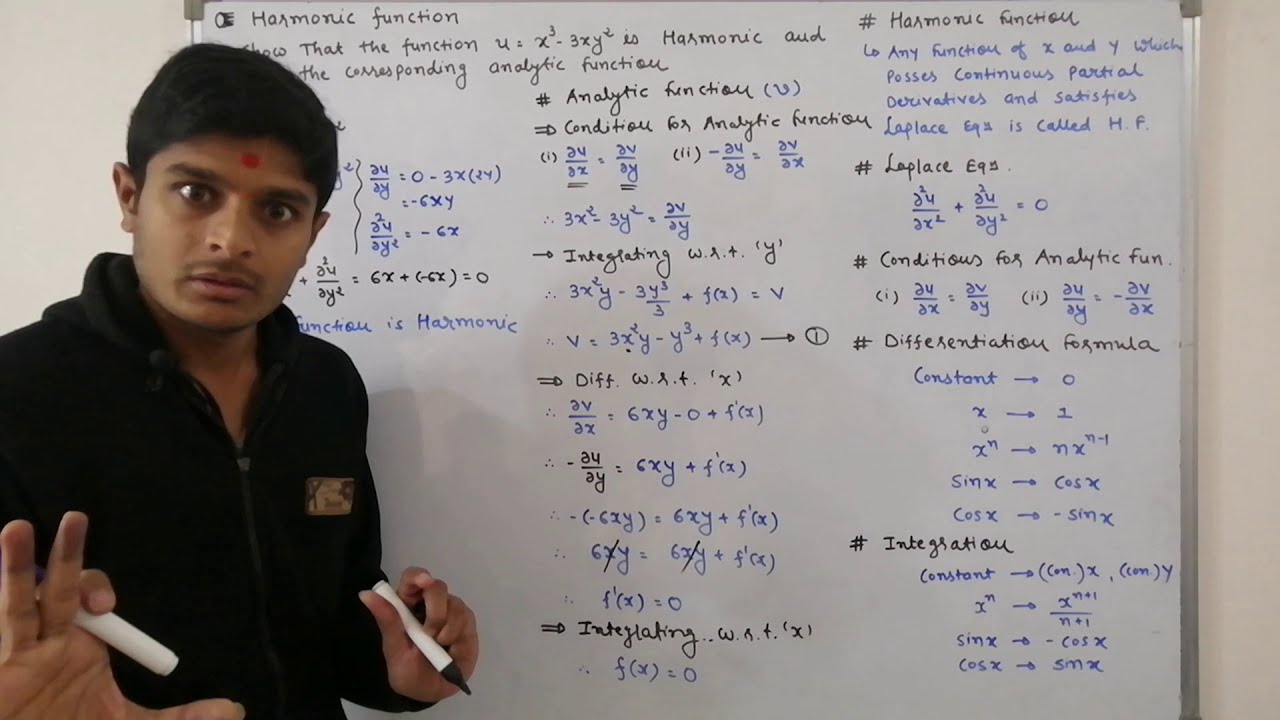 Harmonic function
Show That the function u = x³ - 3xy² is Harmonic and
the corresponding analytic function
∂u/∂y = 0 - 3x(2y)
= -6xy
∂²u/∂y² = -6x
+ ∂²u/∂y² = 6x + (-6x) = 0
function is Harmonic
# Analytic function (v)
⇒ Condition for Analytic function
(i) ∂u/∂x = ∂v/∂y (ii) -∂u/∂y = ∂v/∂x
∴ 3x² - 3y² = ∂v/∂y
→ Integrating w.r.t. 'y'
∴ 3x²y - 3y³/3 + f(x) = v
∴ v = 3x²y - y³ + f(x) → ①
⇒ Diff. w.r.t. 'x'
∴ ∂v/∂x = 6xy - 0 + f'(x)
∴ -∂u/∂y = 6xy + f'(x)
∴ -(-6xy) = 6xy + f'(x)
∴ 6xy = 6xy + f'(x)
∴ f'(x) = 0
⇒ Integlating.. w.r.t. 'x'
∴ f(x) = 0
# Harmonic function
↳ Any function of x and y which
Posses Continuous Partial
Derivatives and satisfies
Laplace Eqn is called H.F.
# Laplace Eqn.
∂²u/∂x² + ∂²u/∂y² = 0
# Conditions for Analytic Fun.
(i) ∂u/∂x = ∂v/∂y (ii) ∂u/∂y = -∂v/∂x
# Differentiation formula
Constant → 0
x → 1
xⁿ → nxⁿ⁻¹
sinx → cosx
cosx → -sinx
# Integration
Constant → (con.)x, (con.)y
xⁿ → xⁿ⁺¹/n+1
sinx → -cosx
cosx → sinx